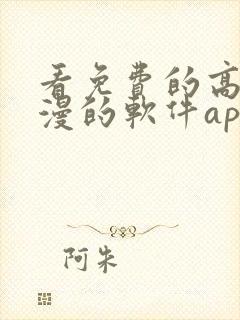 看免費的高
漫的軟件ap
阿朱